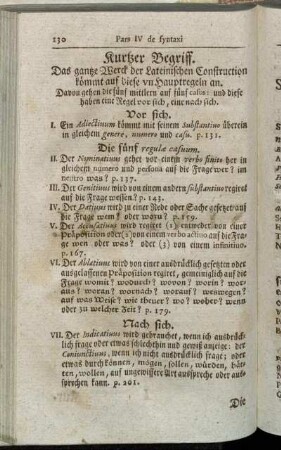 130 Pars IV de syntaxi
Kurtzer Begriff.
Das gantze Werck der Lateinischen Construction
kömmt auf diese VII Hauptregeln an.
Davon gehen die fünf mittlern auf fünf casus: und diese
haben eine Regel vor sich, eine nach sich.
Vor sich.
I. Ein Adiectiuum kömmt mit seinem Substantiuo überein
in gleichem genere, numero und casu. p. 131.
Die fünf regulæ casuum.
II. Der Nominatiuus gehet vor einem verbo finito her in
gleichem numero und persona auf die Frage wer? im
neutro was? p. 137.
III. Der Genitiuus wird von einem andern substantiuo regiret
auf die Frage wessen? p. 143.
IV. Der Datiuus wird zu einer Rede oder Sache gesetzt auf
die Frage wem? oder wozu? p. 159.
V. Der Accusatiuus wird regiret (1) entweder von einer
Präposition oder (2) von einem verbo actiuo auf die Fra-
ge wen oder was? oder (3) von einem infinitiuo.
p. 167.
VI. Der Ablatiuus wird von einer ausdrücklich gesetzten oder
ausgelassenen Präposition regiret, gemeiniglich auf die
Frage womit? wodurch? worinn? wovon? wobey?
woran? woran? wornach? woraus? weswegen?
auf was Weise? wie theuer? woher? wenn
oder zu welcher Zeit? p. 179.
Nach sich.
VII. Der Indicatiuus wird gebrauchet, wenn ich ausdrück-
lich frage oder etwas schlechthin und gewiß anzeige: der
Coniunctiuus, wenn ich nicht ausdrücklich frage; oder
etwas durch können, mögen, sollen, würden, hät-
ten, wollen, auf ungewissere Art ausspreche oder aus-
sprechen kann. p. 201.
Die